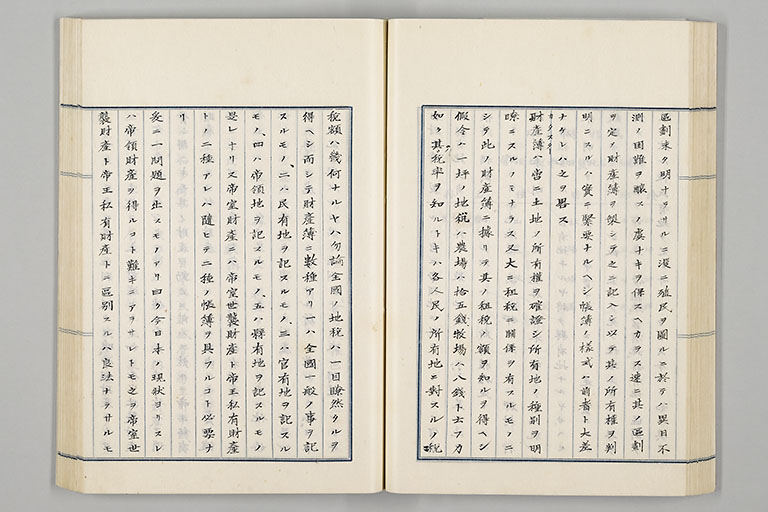 區劃未タ明ナラサルニ漫ニ殖民ヲ圖ルニ於テハ異日不
測ノ困難ヲ釀スノ虞ナキヲ保スヘカラス速ニ其ノ區劃
ヲ定メ財産簿ヲ製シテ之ニ記入シ以テ其ノ所有權ヲ判
明ニスルハ實ニ緊要ナルヘシ帳簿ノ樣式ハ前者ト大差
ナケレハ之ヲ畧ス
財産簿ハ啻ニ土地ノ所有權ヲ確證シ所有地ノ種別ヲ明
瞭ニスルノミナラス又大ニ租税ニ關係ヲ有スルモノニ
シテ此ノ財産簿ニ據リテ其ノ租税ノ額ヲ知ルヲ得ヘシ
假令ハ一坪ノ地筑ハ農場ハ拾五錢、牧場ハ八錢ト云フカ
如ク其ノ税率ヲ知ルトキハ各人民ノ所有地ニ對スルノ税
税額ハ幾何ナルヤハ勿論全國ノ地税ハ一目瞭然タルヲ
得ヘシ而シテ財産簿ニ數種アリ一ハ全國一般ノ事ヲ記
スルモノ、二ハ民有地ヲ記スルモノ、三ハ官有地ヲ記スル
モノ、四ハ帝領地ヲ記スルモノ、五ハ縣有地ヲ記スルモノ
是レナリス帝室財産ニハ帝室世襲財産ト帝王私有財産
トノ二種アレハ隨ヒテ二種ノ帳簿ヲ具フルコト必要ナ
リ
爰ニ一問題ヲ止スモノアリ曰ク今日日本ノ現狀ヨリスレ
ハ帝領財産ヲ得ルコト難キニアラサレトモ之ヲ帝室世
襲財産ト帝王私有財産トニ區別スルハ良法ナラサルモ